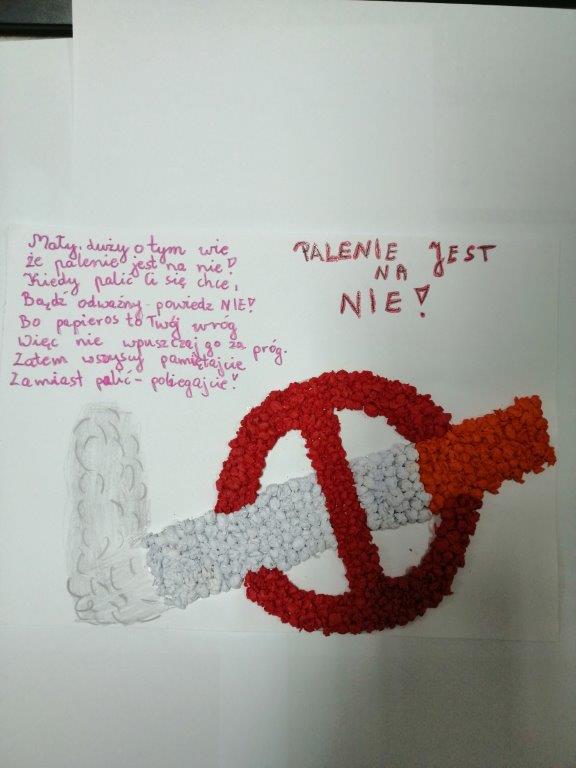 Mały, duży o tym wie
że palenie jest na nie!
Kiedy palić Ci się chce,
Bądź odważny - powiedz NIE!
Bo papieros to Twój wróg
Więc nie wpuszczaj go za próg.
Zatem wszyscy pamiętajcie
Zamiast palić - pobiegajcie!
PALENIE JEST
NA
NIE!